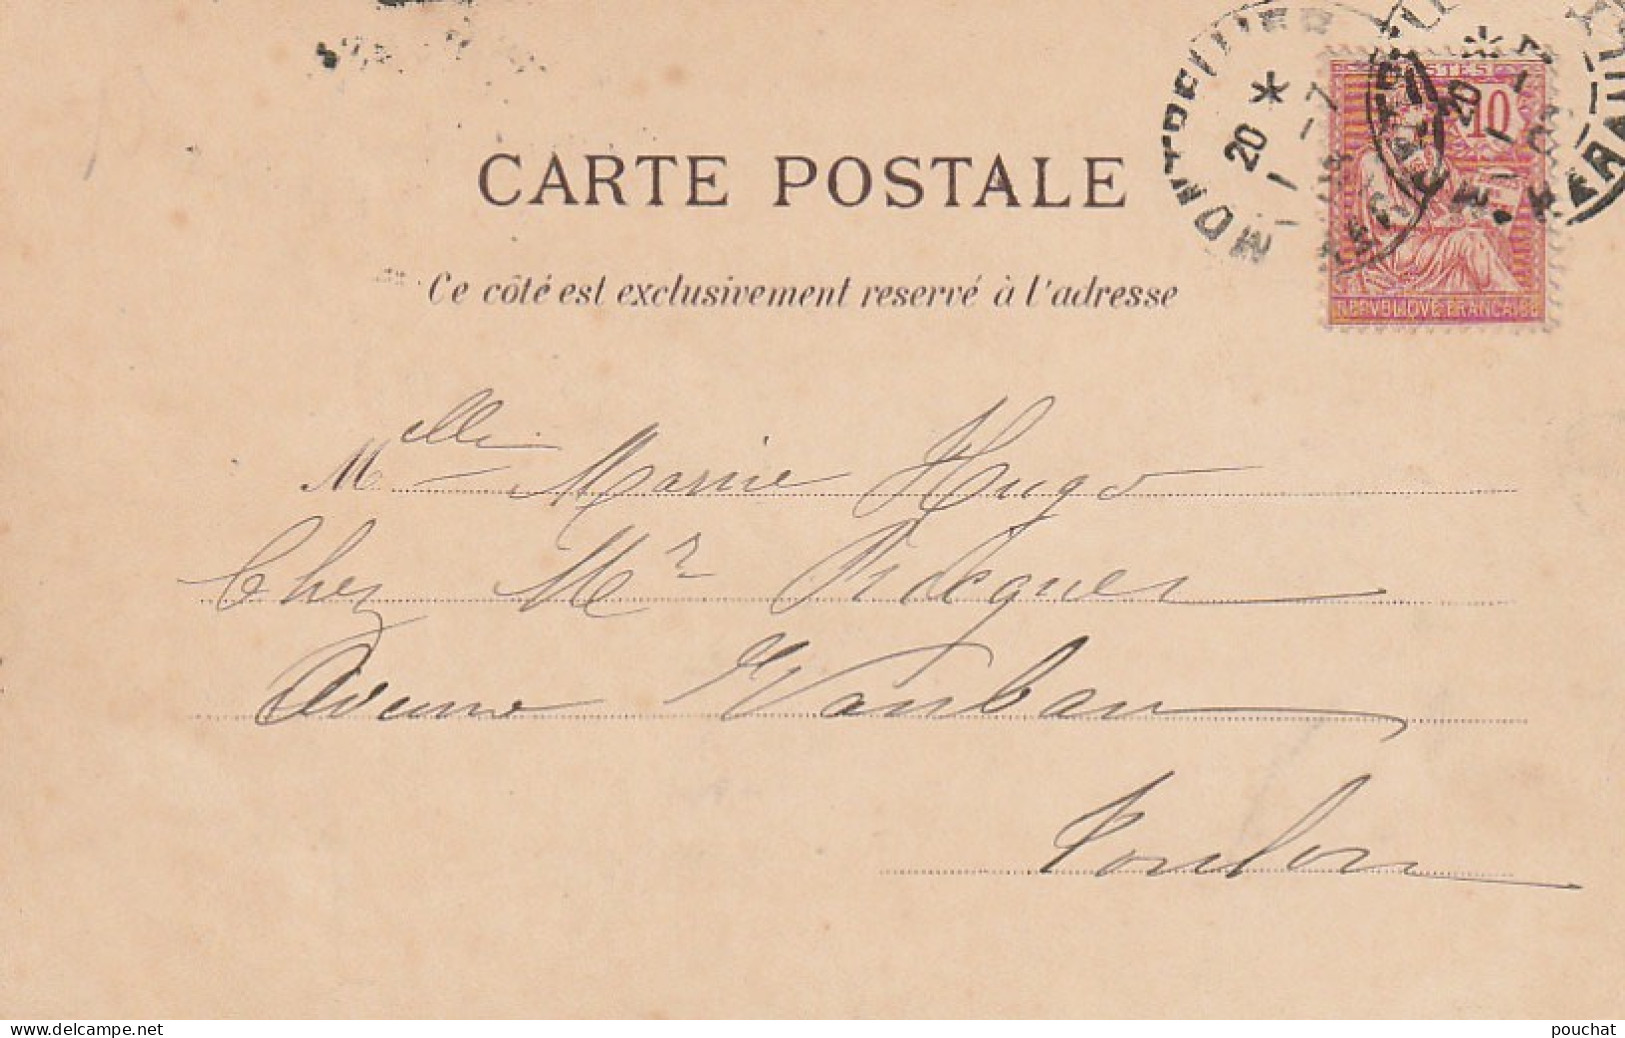 MONTPELLIER
20 *
HERAULT
POSTES
10
REPVBLIQVE FRANCAISE
CARTE POSTALE
Ce côté est exclusivement reservé à l'adresse
Melle Marie Hugo
Chez Mr
Avenue Vauban
Toulon
www.delcampe.net
pouchat